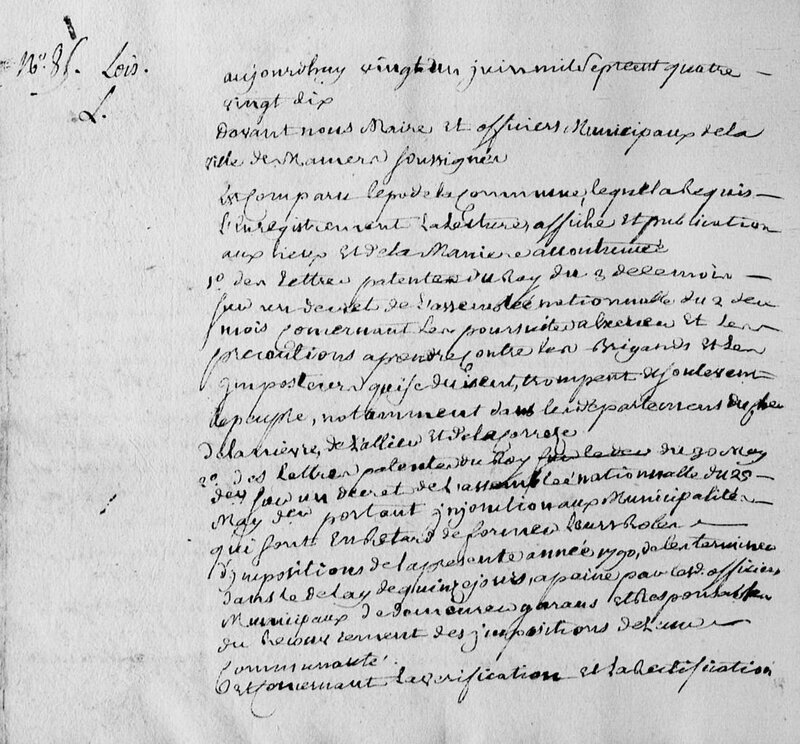 N.o 85. Lois.
L.
aujourdhuy vingt un juin mil Sept cent quatre
vingt dix
Devant nous Maire et officiers Municipaux de la
ville de Mamers soussignés
Est Comparu le po de la Commune, lequel a Requis
L'Enregistrement La Lecture, affiche et publication
aux lieux Et de la Maniere accoutumée
1o des Lettres patentes du Roy du 3 de ce mois
sur un decret de L'assemblée nationnalle du 2 du
mois Concernant Les poursuites a Exercer Et Les
precautions a prendre contre Les Brigands Et Les
Imposteurs qui séduisent, trompent et soulevent
le peuple, notamment dans les departemens du cher
de la nievre, de L'allier Et de la Correze
2o des Lettres patentes du Roy du 30 May
der sur un decret de L'assemblée nationnalle du 25
May der portant injonction aux Municipalités
qui sont En Retard de former Leurs Roles
d'impositions de la presente année 1790, de les terminer
dans le delay de quinze jours, a paine par les d. officiers
Municipaux de demeurer garans et Responsables
du Recouvrement des impositions de Leur
Communauté.
Et Concernant La verification et La Rectification